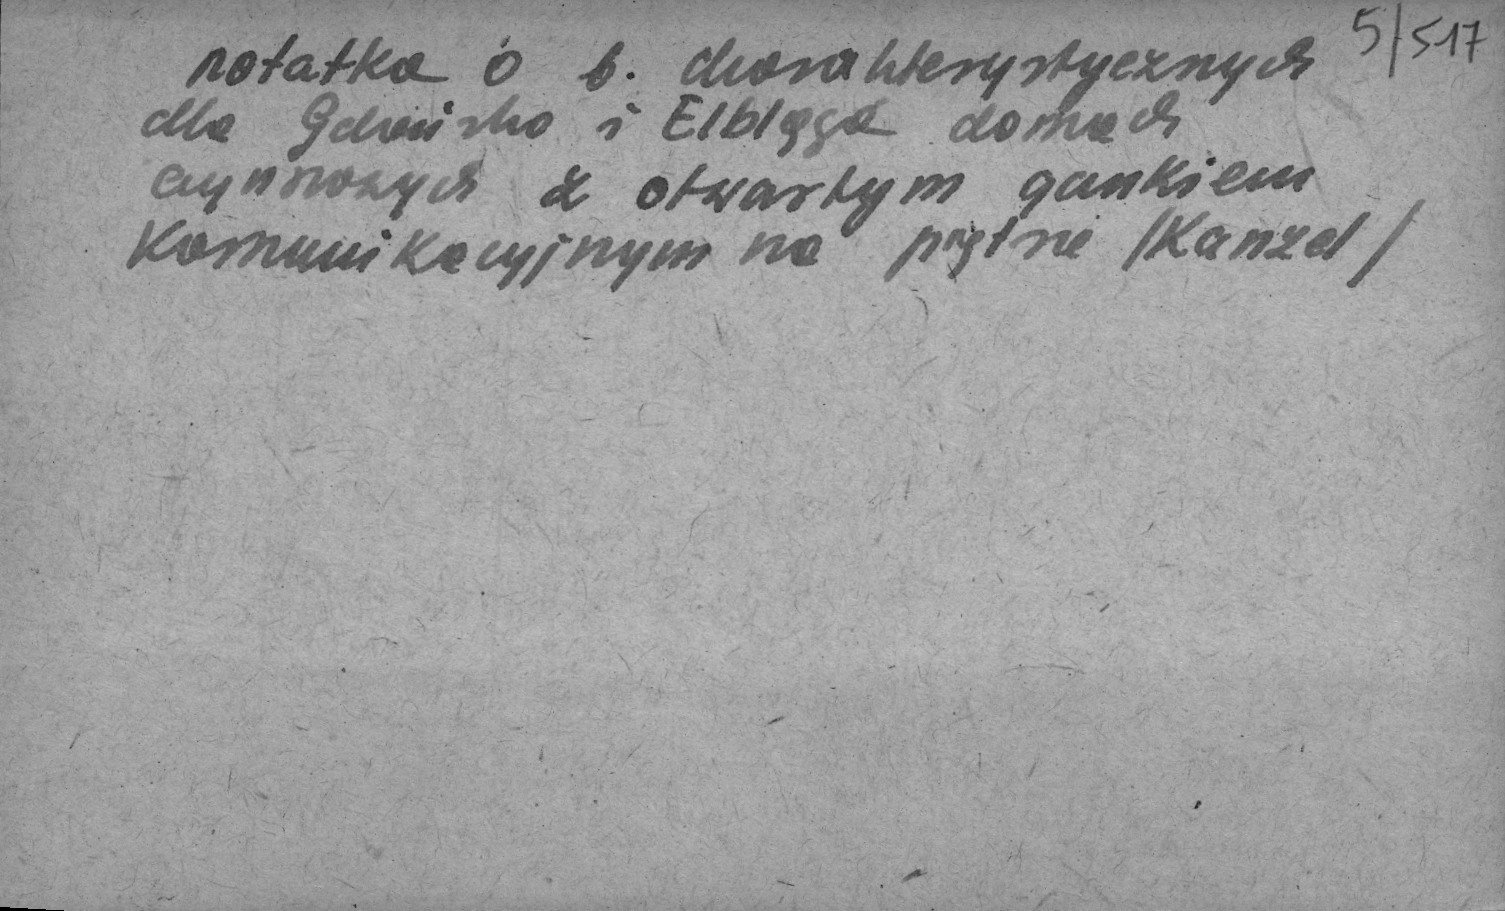 5/517
notatka o b. charakterystycznych
dla Gdańska i Elbląga domach
czynszowych z otwartym gankiem
komunikacyjnym na piętrze /Kanzel/